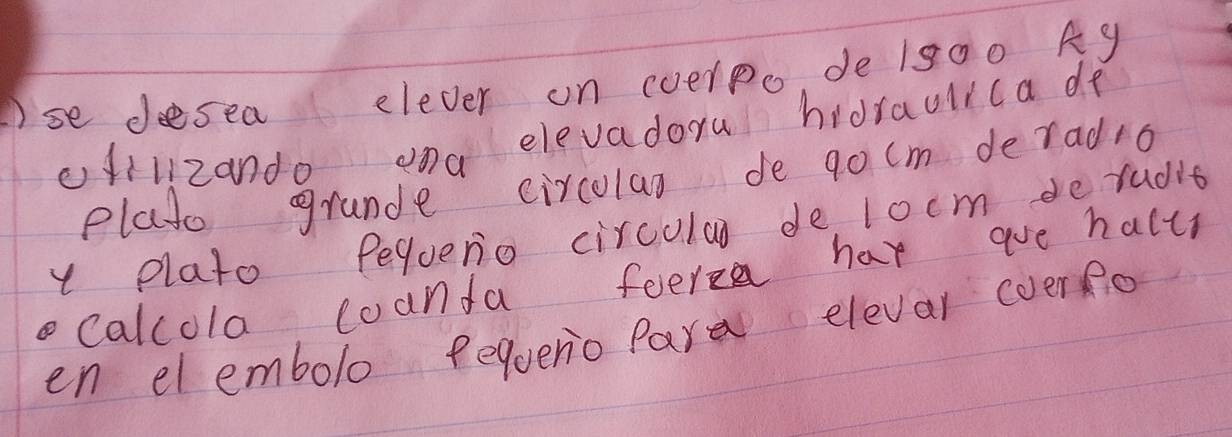 .) se desea elever un cuerpo de 1500 kg
utilizando una elevadora hidraulica de
plato grande circular de 90 cm de radio
y plato pequeño circular de 10cm de radio
• calcula cuanta fuerza hay que hacer
en el embolo pequeño para elevar cuerpo